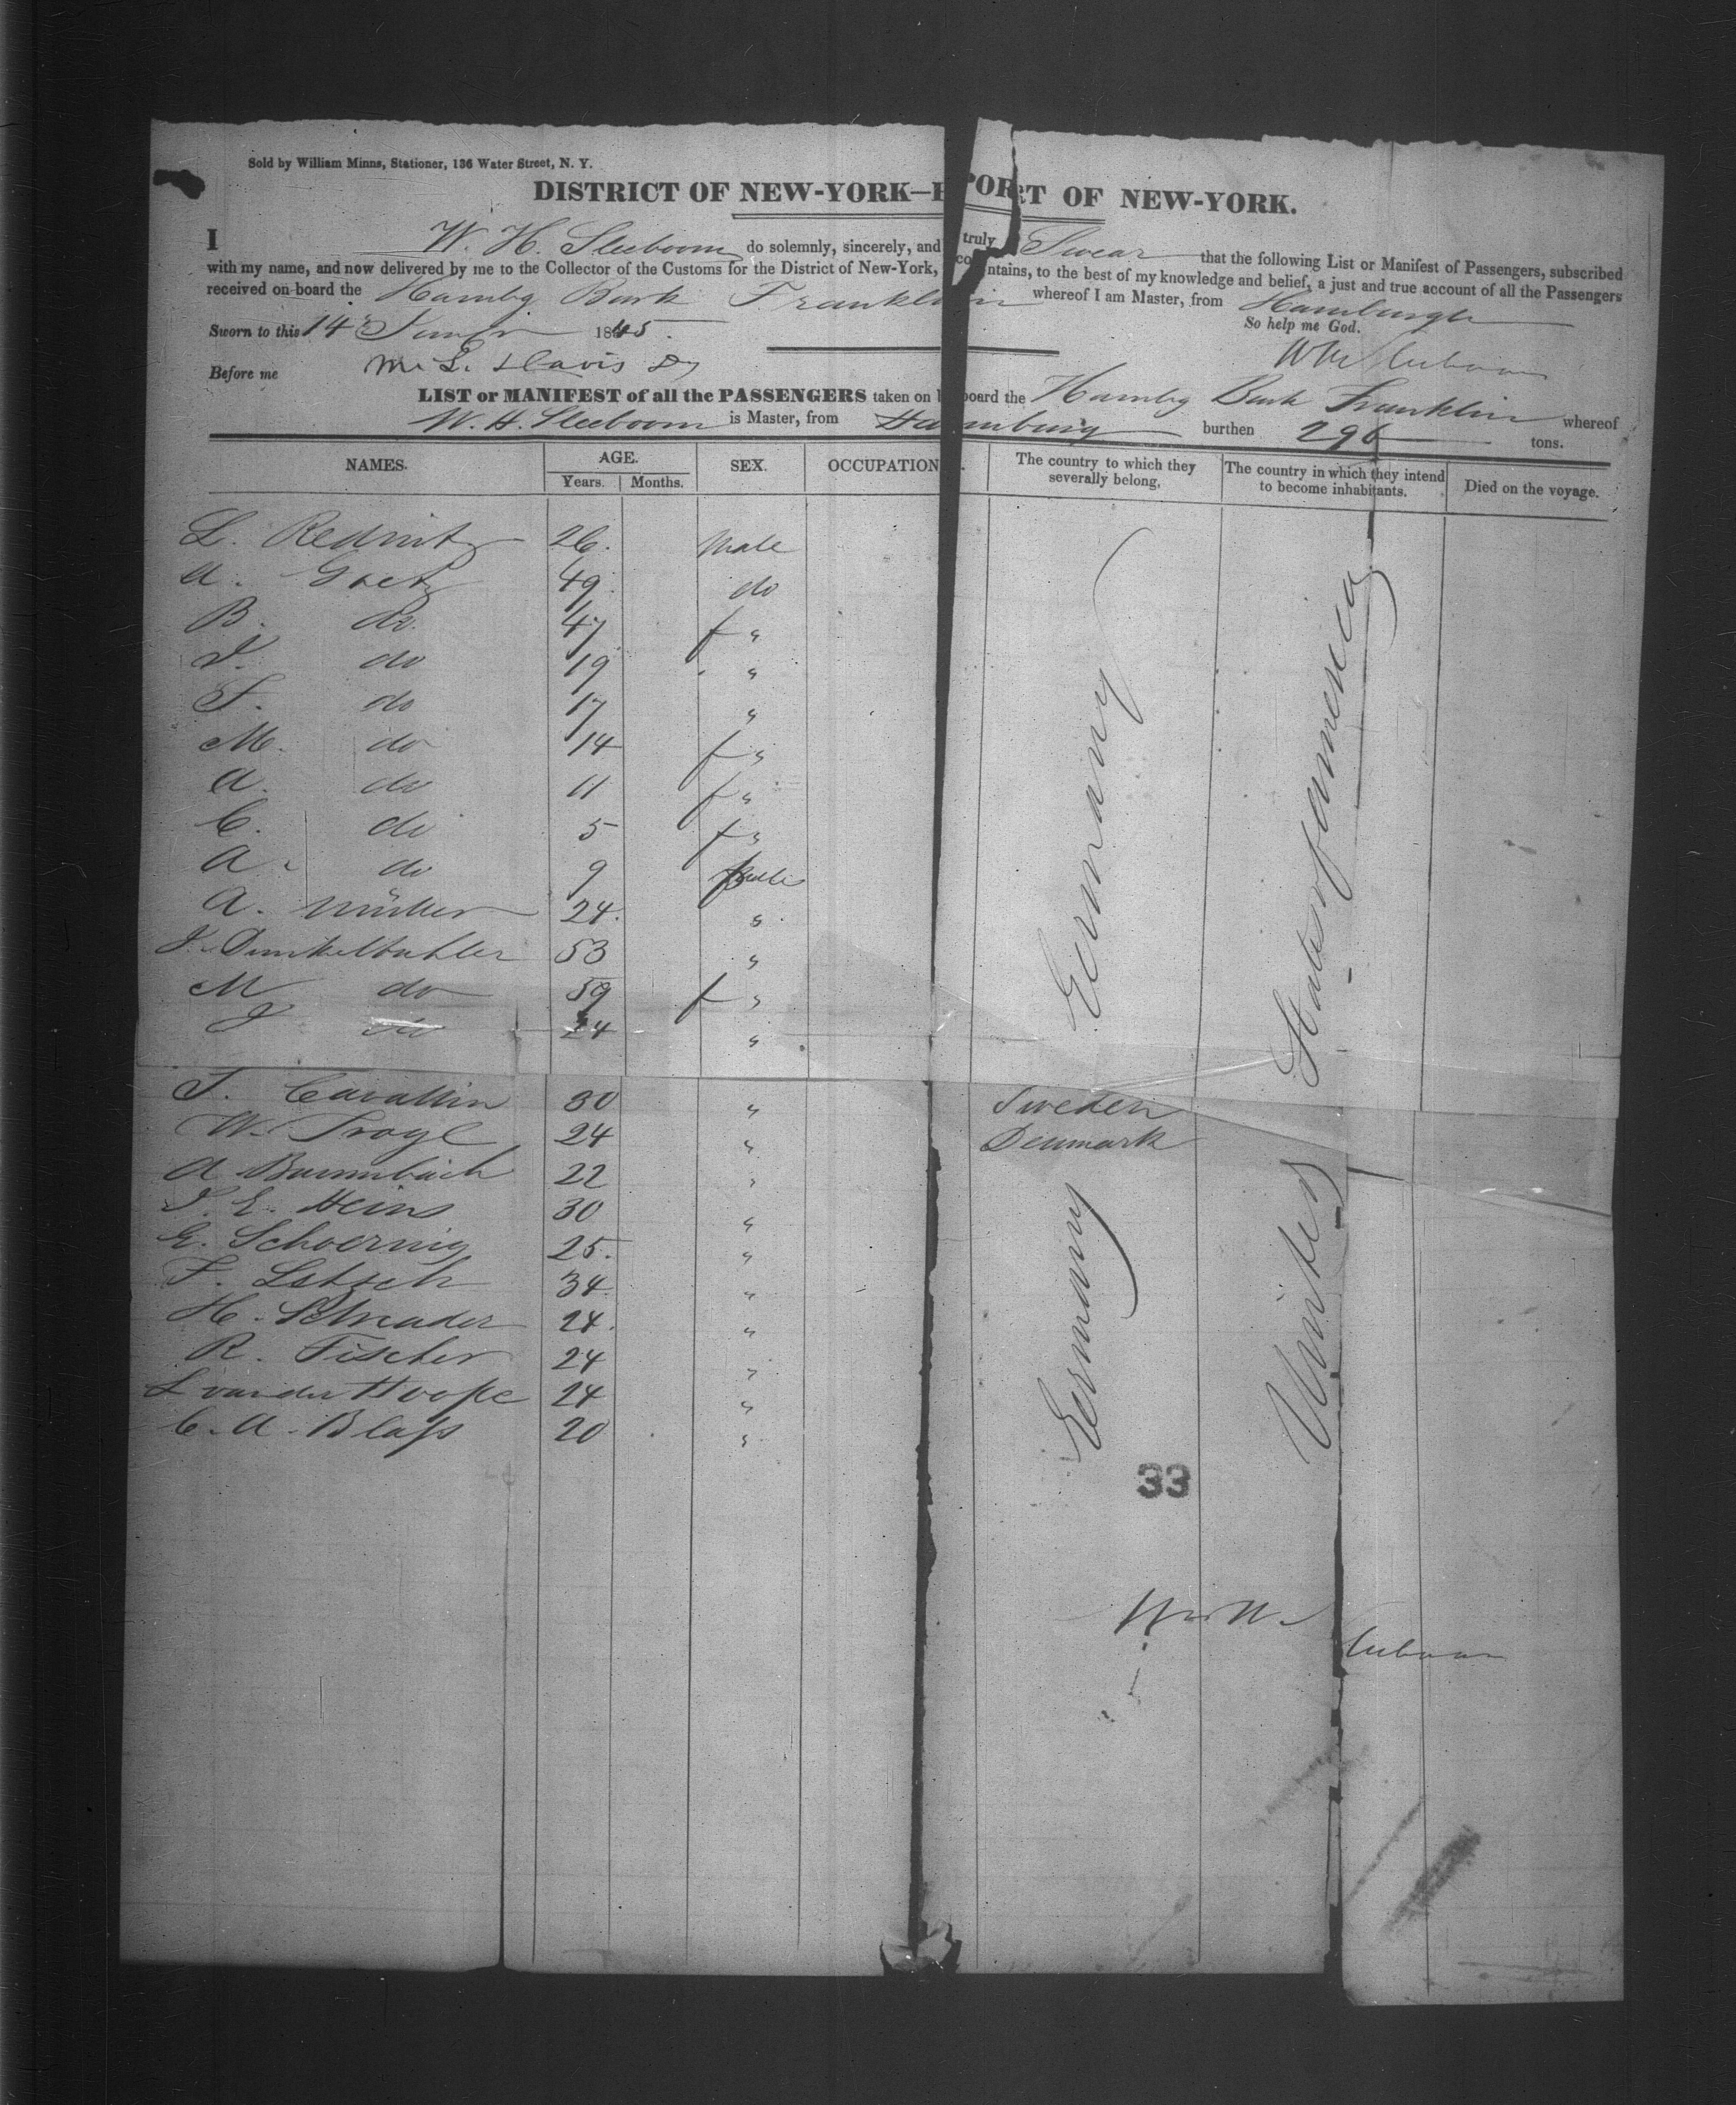 Sold by William Minns, Stationer, 136 Water Street, N. Y.
DISTRICT OF NEW-YORK—PORT OF NEW-YORK.
I W. H. Sleeboom do solemnly, sincerely, and truly Swear that the following List or Manifest of Passengers, subscribed
with my name, and now delivered by me to the Collector of the Customs for the District of New-York, contains, to the best of my knowledge and belief, a just and true account of all the Passengers
received on board the Hambg Bark Franklin whereof I am Master, from Hamburgh
Sworn to this 14 1845. So help me God.
Before me
LIST or MANIFEST of all the PASSENGERS taken on board the Hambg Bark Franklin whereof
W. H. Sleeboom is Master, from Hamburg burthen 296 tons.
NAMES. AGE. Years. Months. SEX. OCCUPATION. The country to which they severally belong, The country in which they intend to become inhabitants. Died on the voyage.
L. 26. Male
A. 49 do
B. do. 47 f "
do 19 "
F. do 17 "
M. do 14 f "
A. do 11 f "
C. do 5 f "
A. do 9
A. Müller 24. "
J. Dunkelbuhler 53 "
M do 59 f "
J do 24 "
Germany
United States of America
T. Cavallin 30 " Sweden
W. 24 " Denmark
A 22 "
J. E. Heins 30 "
E. Schoernig 25. "
F. Letzsch 34 "
H. Schrader 24. "
R. Fischer 24 "
L van der Hoope 24 "
C. A. Blaß 20 "
Germany
33